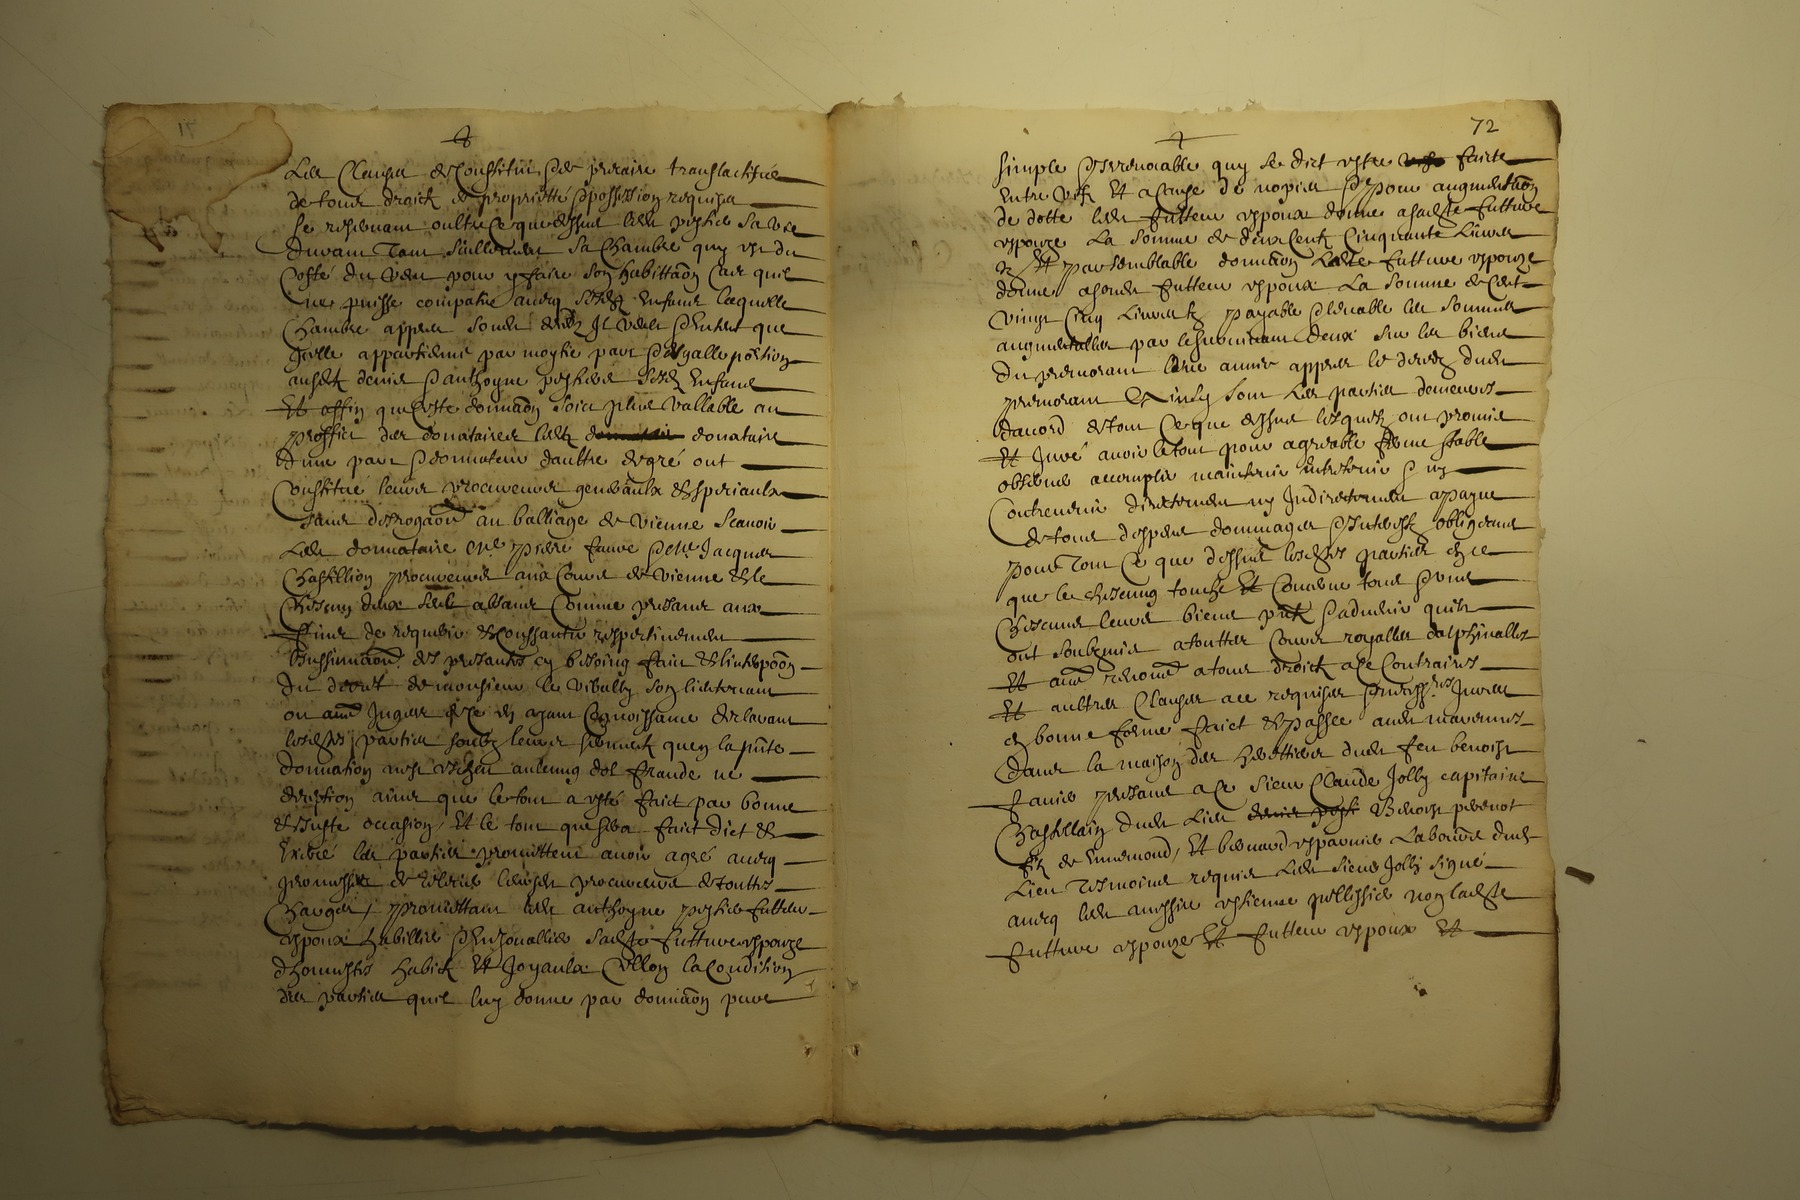 Les Clauses de Constitut et de precaire translactifves
de tous droictz de proprietté et possession requises
Se reservant oultre ce que dessus led pestier sa vie
durant Tant seullement sa chambre quy est du
Costé du vent pour y faire son habittaôn Cas quil
ne puisse compatir avecq sesdz enfans laquelle
Chambre appres sond decedz Il veult et entent que
Icelle appartienne par moytié part et esgalle portion
ausdtz denis et anthoyne pestiers sesdz enfans
Et affin que ceste donnaôn soict plus vallable au
proffict des donataires lesdtz donataire
dune part et donnateur daultre de gré ont
Constitué leurs procureurs generaulx et speciaulx
sans desrogaôn au balliage de vienne Scavoir
Lesd donnataire me pierre faure et me Jacques
Chastillion procureurs aux Cours de vienne et le
Chescung deulx absans Comme presans aux
fins de requerir et Conssantir respectivement
linssinuaôn des presantes cy besoing faict et lintepoôn
du decret de monsieur le vibally son lieutenant
ou aue Juges ayant Cognoissance declarant
lesdtes parties soubz leurs sermentz quen la pnte
donnation nest aulcung dol fraude ne
deception ains que le tout a esté faict par bonne
et Juste occasion / Et le tout que sera faict dict et
les parties promettent avoir agré avecq
promesse de relever leursd procureurs de touttes
Charges / promettant led anthoyne pestier futteur
espoux habillier et enjouallier sadte future espouze
dhonnestes habictz Et Joyaulx sellon la Condition
des parties quil luy donne par donnaôn pure
72
simple et Irrevocable quy se dict estre faicte
Entre vifz Et a Cause de nopces et pour augmentaôn
de dotte led futteur espoux donne a sadte future
espouze La somme de deux Centz Cinquante Livres
Et par semblable donnaôn Ladte future espouze
donne a sond futteur espoux La somme de Cent
vingt Cinq Livres tz payable et levable les sommes
augmentalles par le survivant deux sur les biens
du premorant lanné appres le decez dud
premorant Et Ainsy sont Les parties demeures
daccord de tout Ce que dessus lesquelz ont promis
Et Juré avoir le tout pour agreable ferme stable
observer accomplir maintenir entretenir et ny
Contrevenir directement ny Indirectement a payne
de tous despens dommages et Interestz obligeans
pour Tout Ce que dessus lesdtes parties en ce
que le chescung touche Et Conserne tous et uns
Chescungs leurs biens pntz et advenir quilz
ont soubzmis a touttes Cours royalles dalphinalles
Et aue renonce a tous droictz a ce Contraires
Et aultres Clauses ace requises Jurees
en bonne forme faict et passee
dans la maison des herettiers dud feu benoist
faure presans a ce sieur Claude Jolly capitaine
Chastellain dud Lieu Benoist prevot
filz de Ennemond / Et bernard esparvier Laboure dud
Lieu Tesmoins requis Led sieur Jolly signe
avecq led messire estienne pellissier non ladte
future espouze Et futteur espoux Et